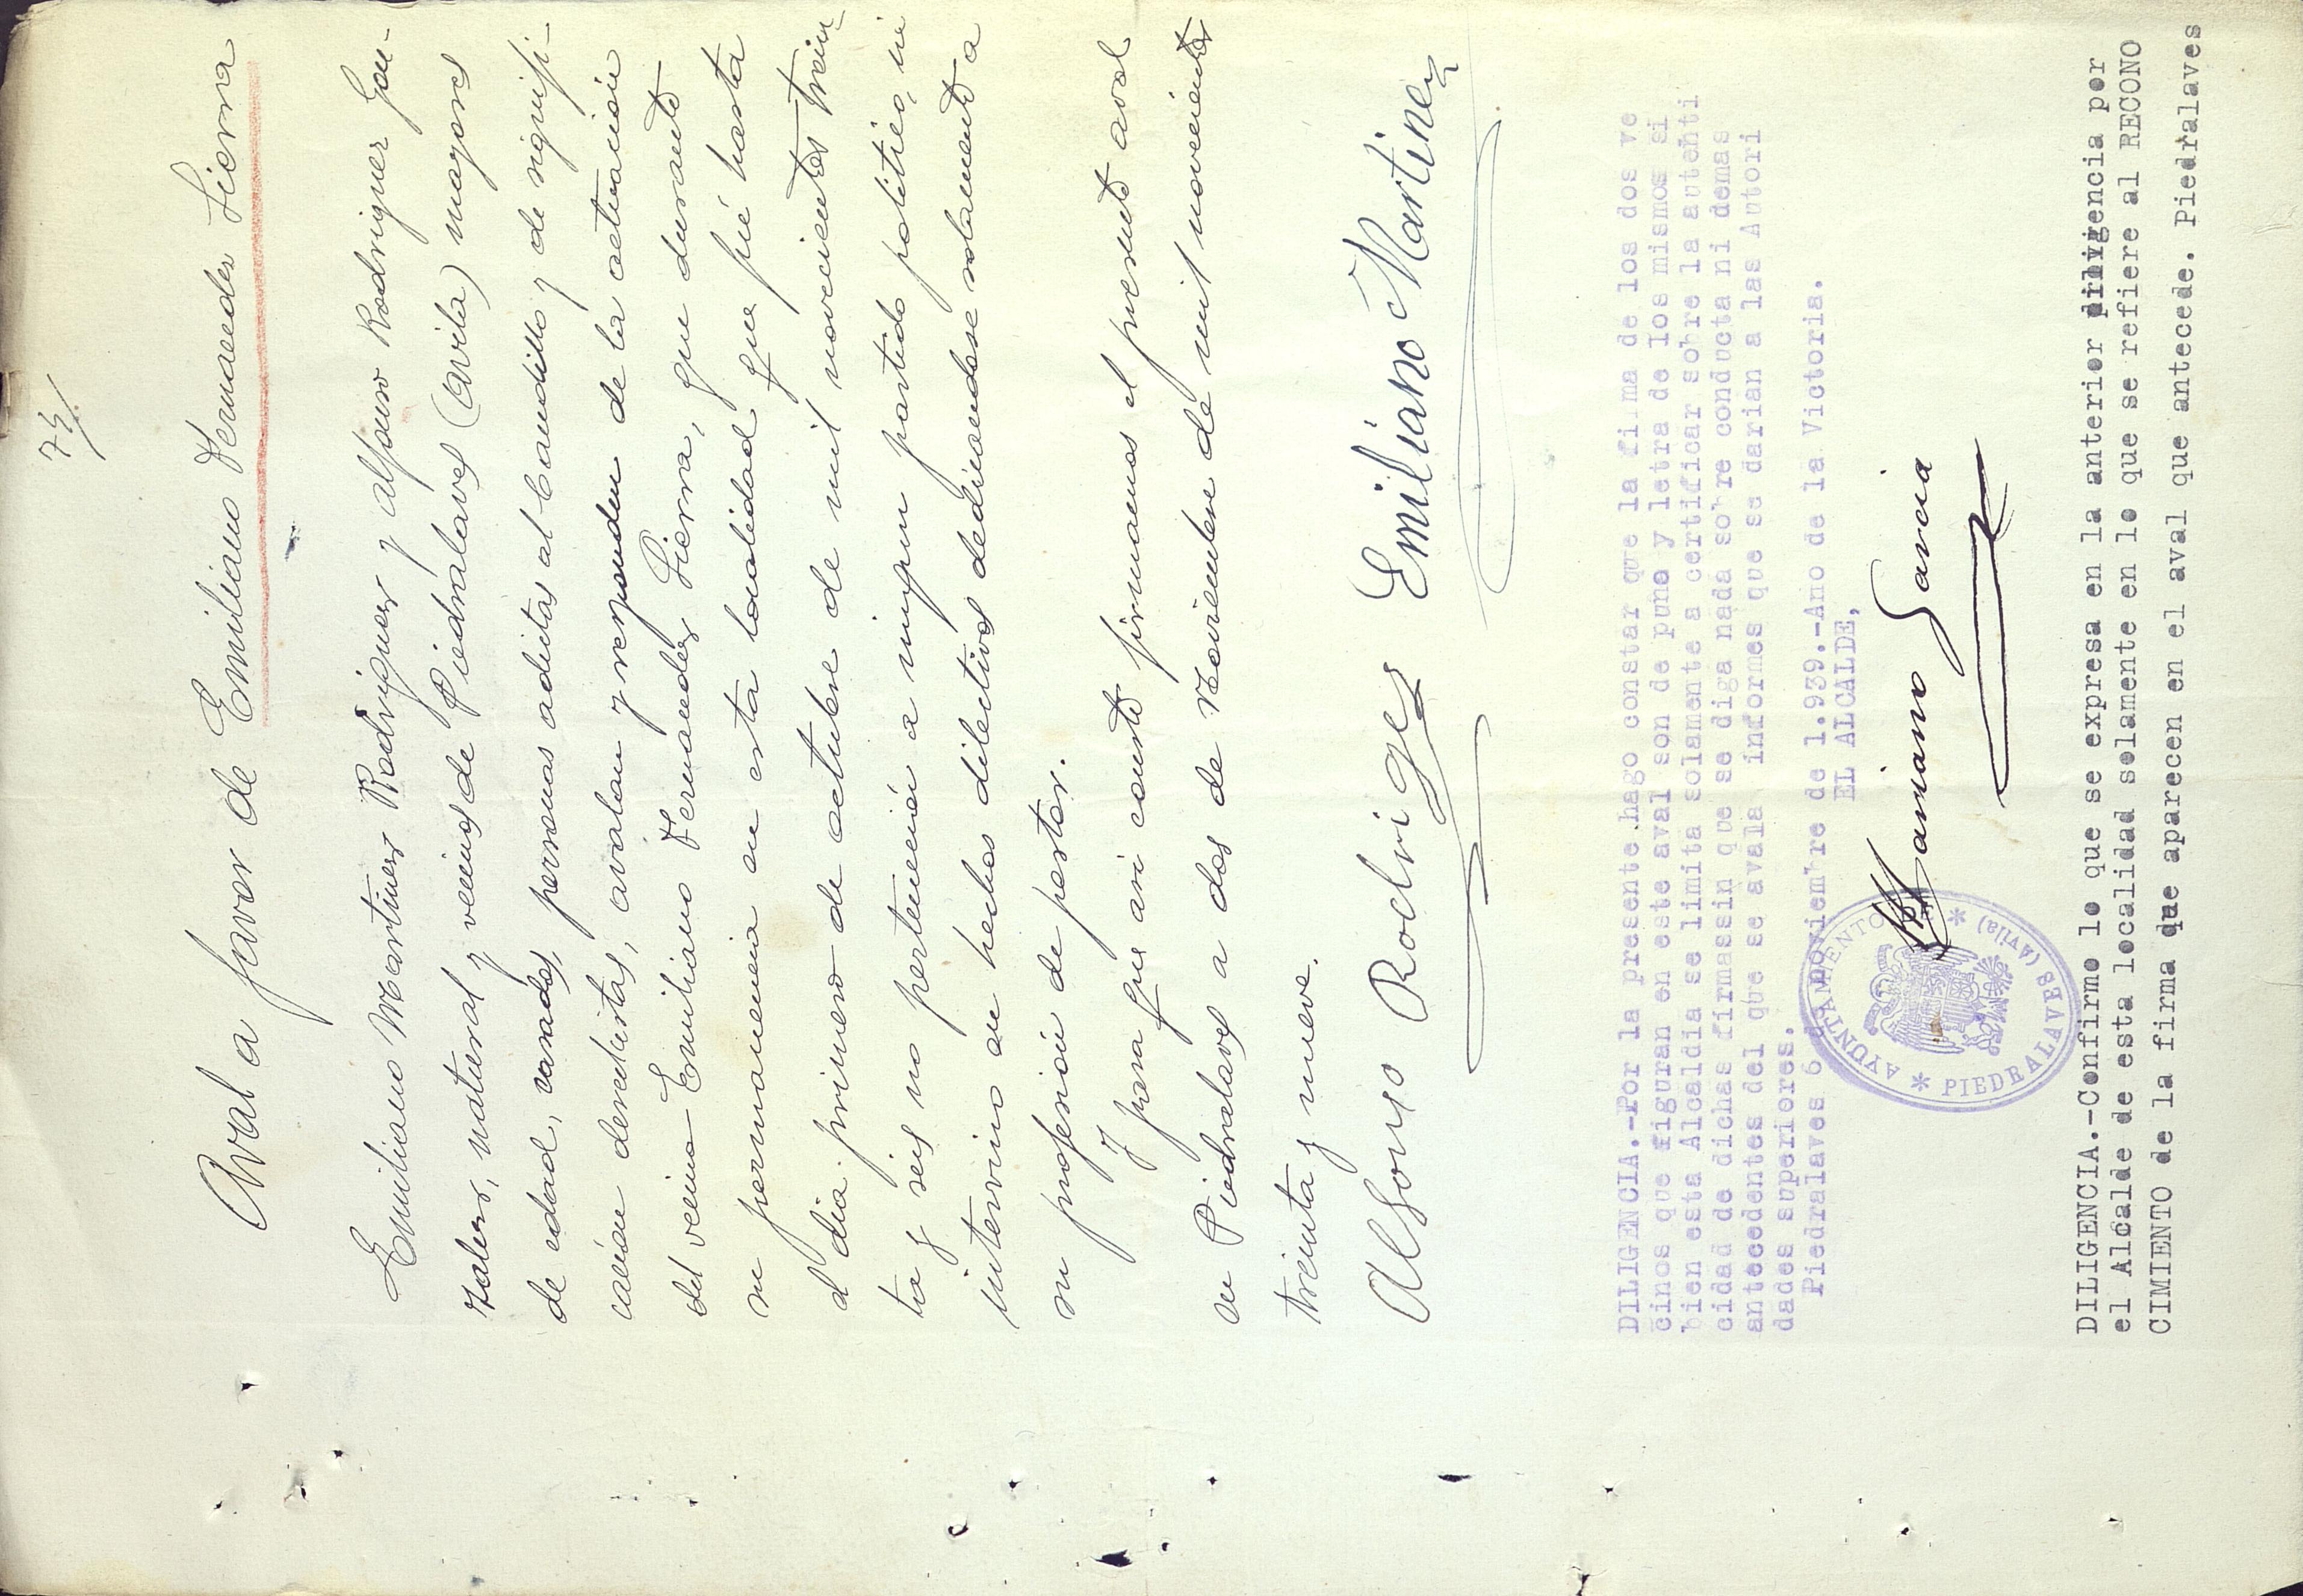 73/
Aval a favor de Emiliano Fernandez Sierra
Emiliano Martinez Rodriguez y Alfonso Rodriguez Gon-
zalez, natural y vecinos de Piedralaves (Avila) mayores
de edad, casados, personas adictas al Caudillo y de signifi-
cación derechistas, avalan y responden de la actuación
del vecino Emiliano Fernandez Sierra, que durante
su permanencia en esta localidad que fué hasta
el dia primero de octubre de mil novecientos trein-
ta y seis no perteneció a ningun partido politico, ni
intervino en hechos delictivos dedicandose solamente a
su profesión de pastor.
Y para que asi conste firmamos el presente aval
en Piedralaves a dos de Noviembre de mil novecientos
treinta y nueve.
Alfonso Rodriges Emiliano Martinez
DILIGENCIA.-Por la presente hago constar que la firma de los dos ve
cinos que figuran en este aval son de puño y letra de los mismos si
bien esta Alcaldia se limita solamente a certificar sobre la autenti
cidad de dichas firmassin que se diga nada sobre conducta ni demas
antecedentes del que se avala informes que se darian a las Autori
dades superiores.
Piedralaves 6 de noviembre de 1.939.-Ano de la Victoria.
EL ALCALDE,
Mariano Garcia
* AYUNTAMIENTO * PIEDRALAVES (Avila)
DILIGENCIA.-Confirmo lo que se expresa en la anterior diligencia por
el Alcalde de esta localidad solamente en lo que se refiere al RECONO
CIMIENTO de la firma que aparecen en el aval que antecede. Piedralaves